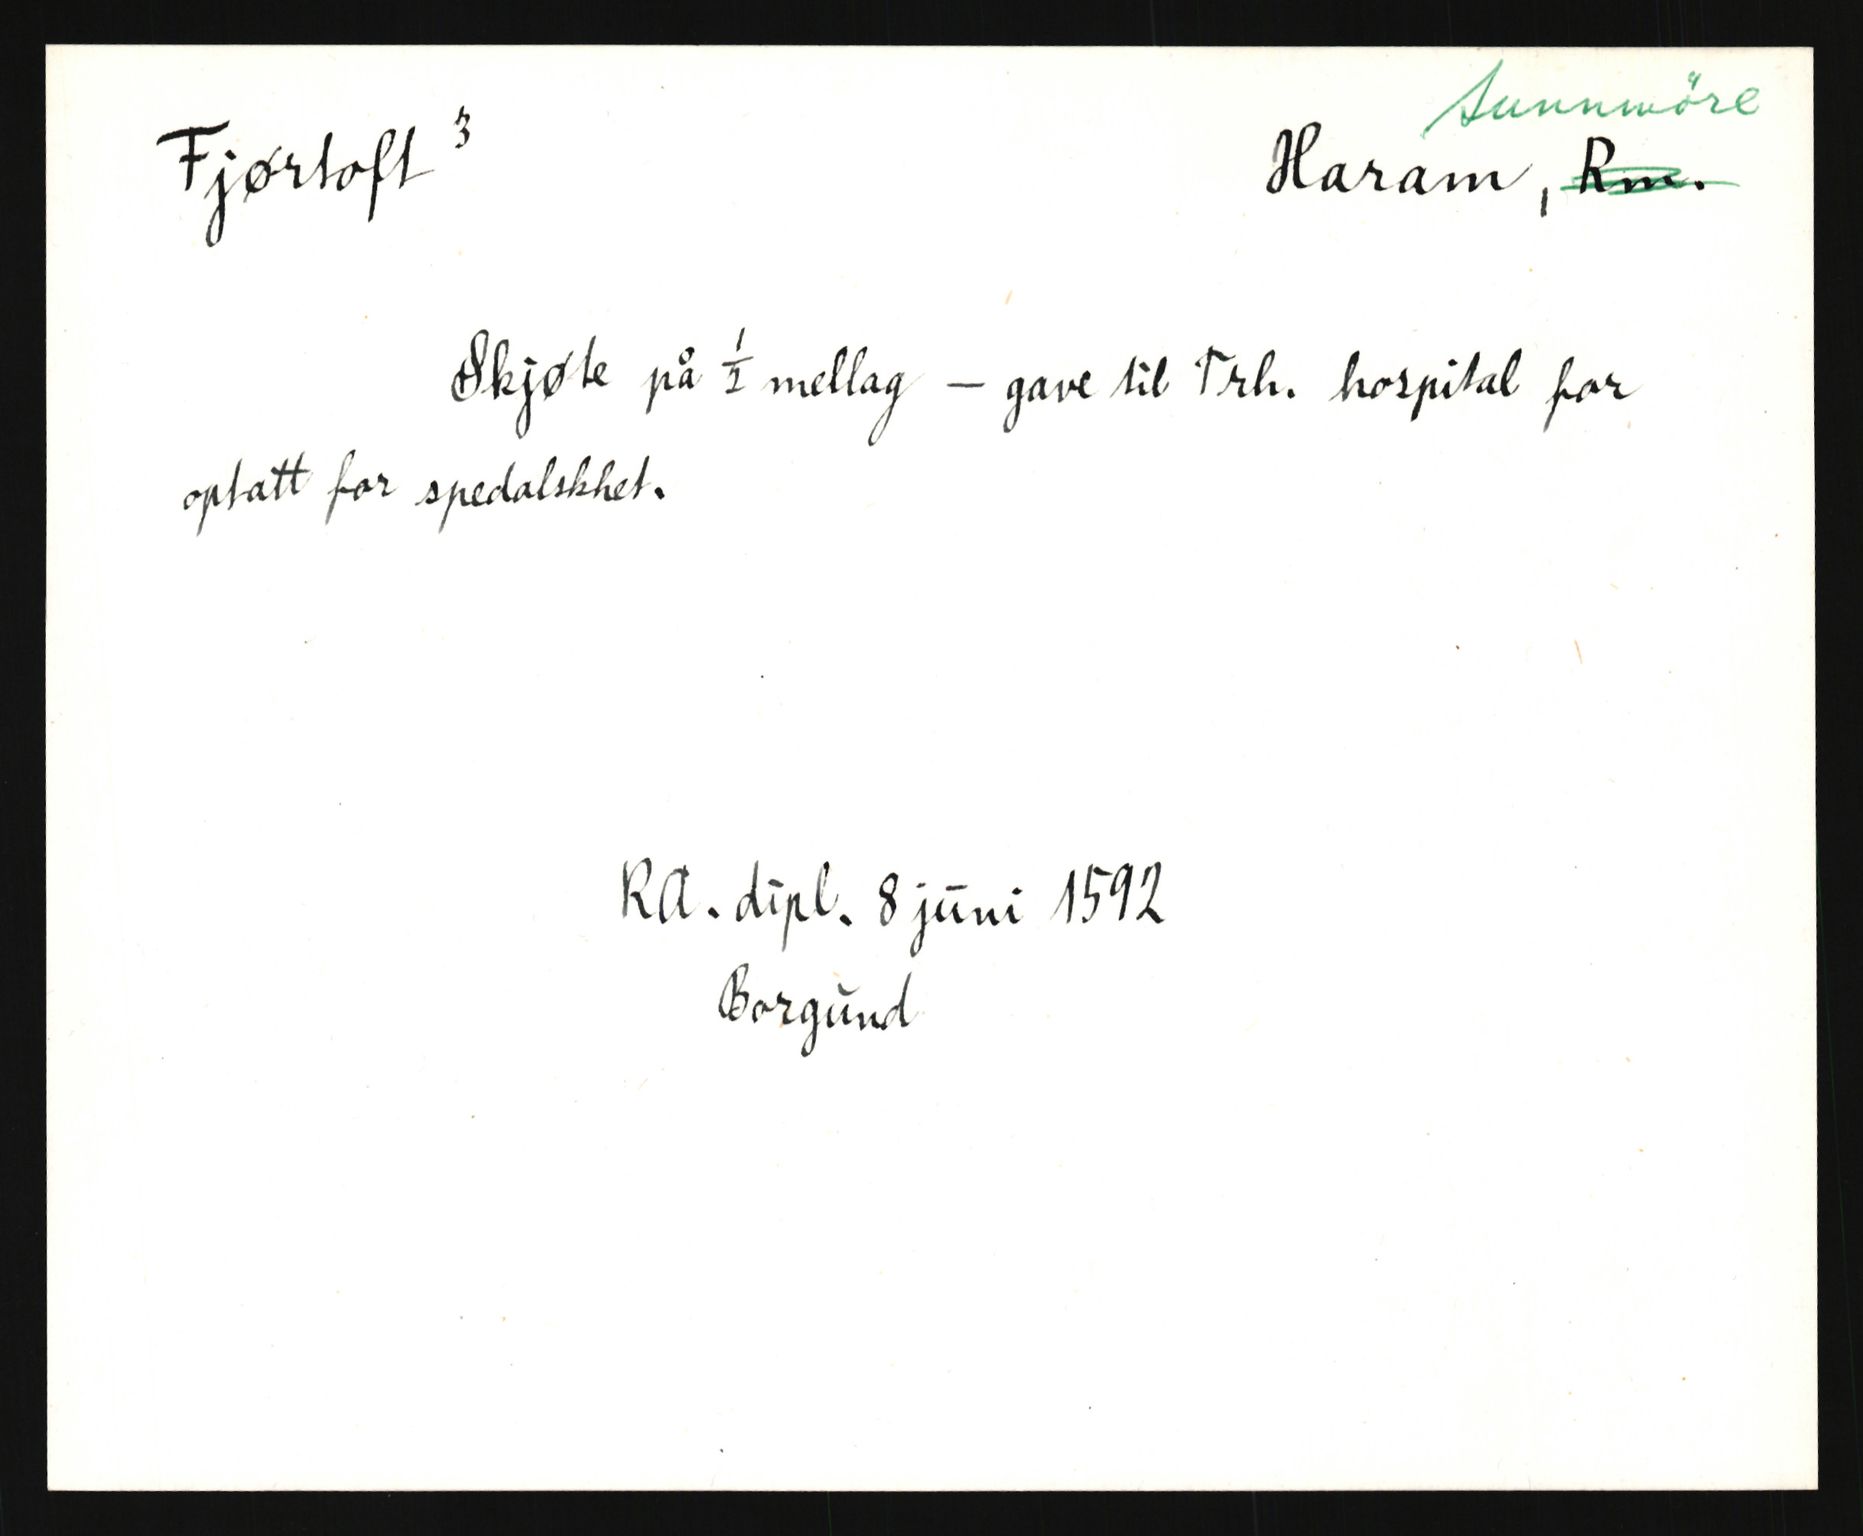 Sunnmöre
Fjørtoft 3 Haram, Rm.
Skjøte på 1/2 mellag - gave til Trh. hospital for
optatt for spedalskhet.
RA. dipl. 8 juni 1592
Borgund